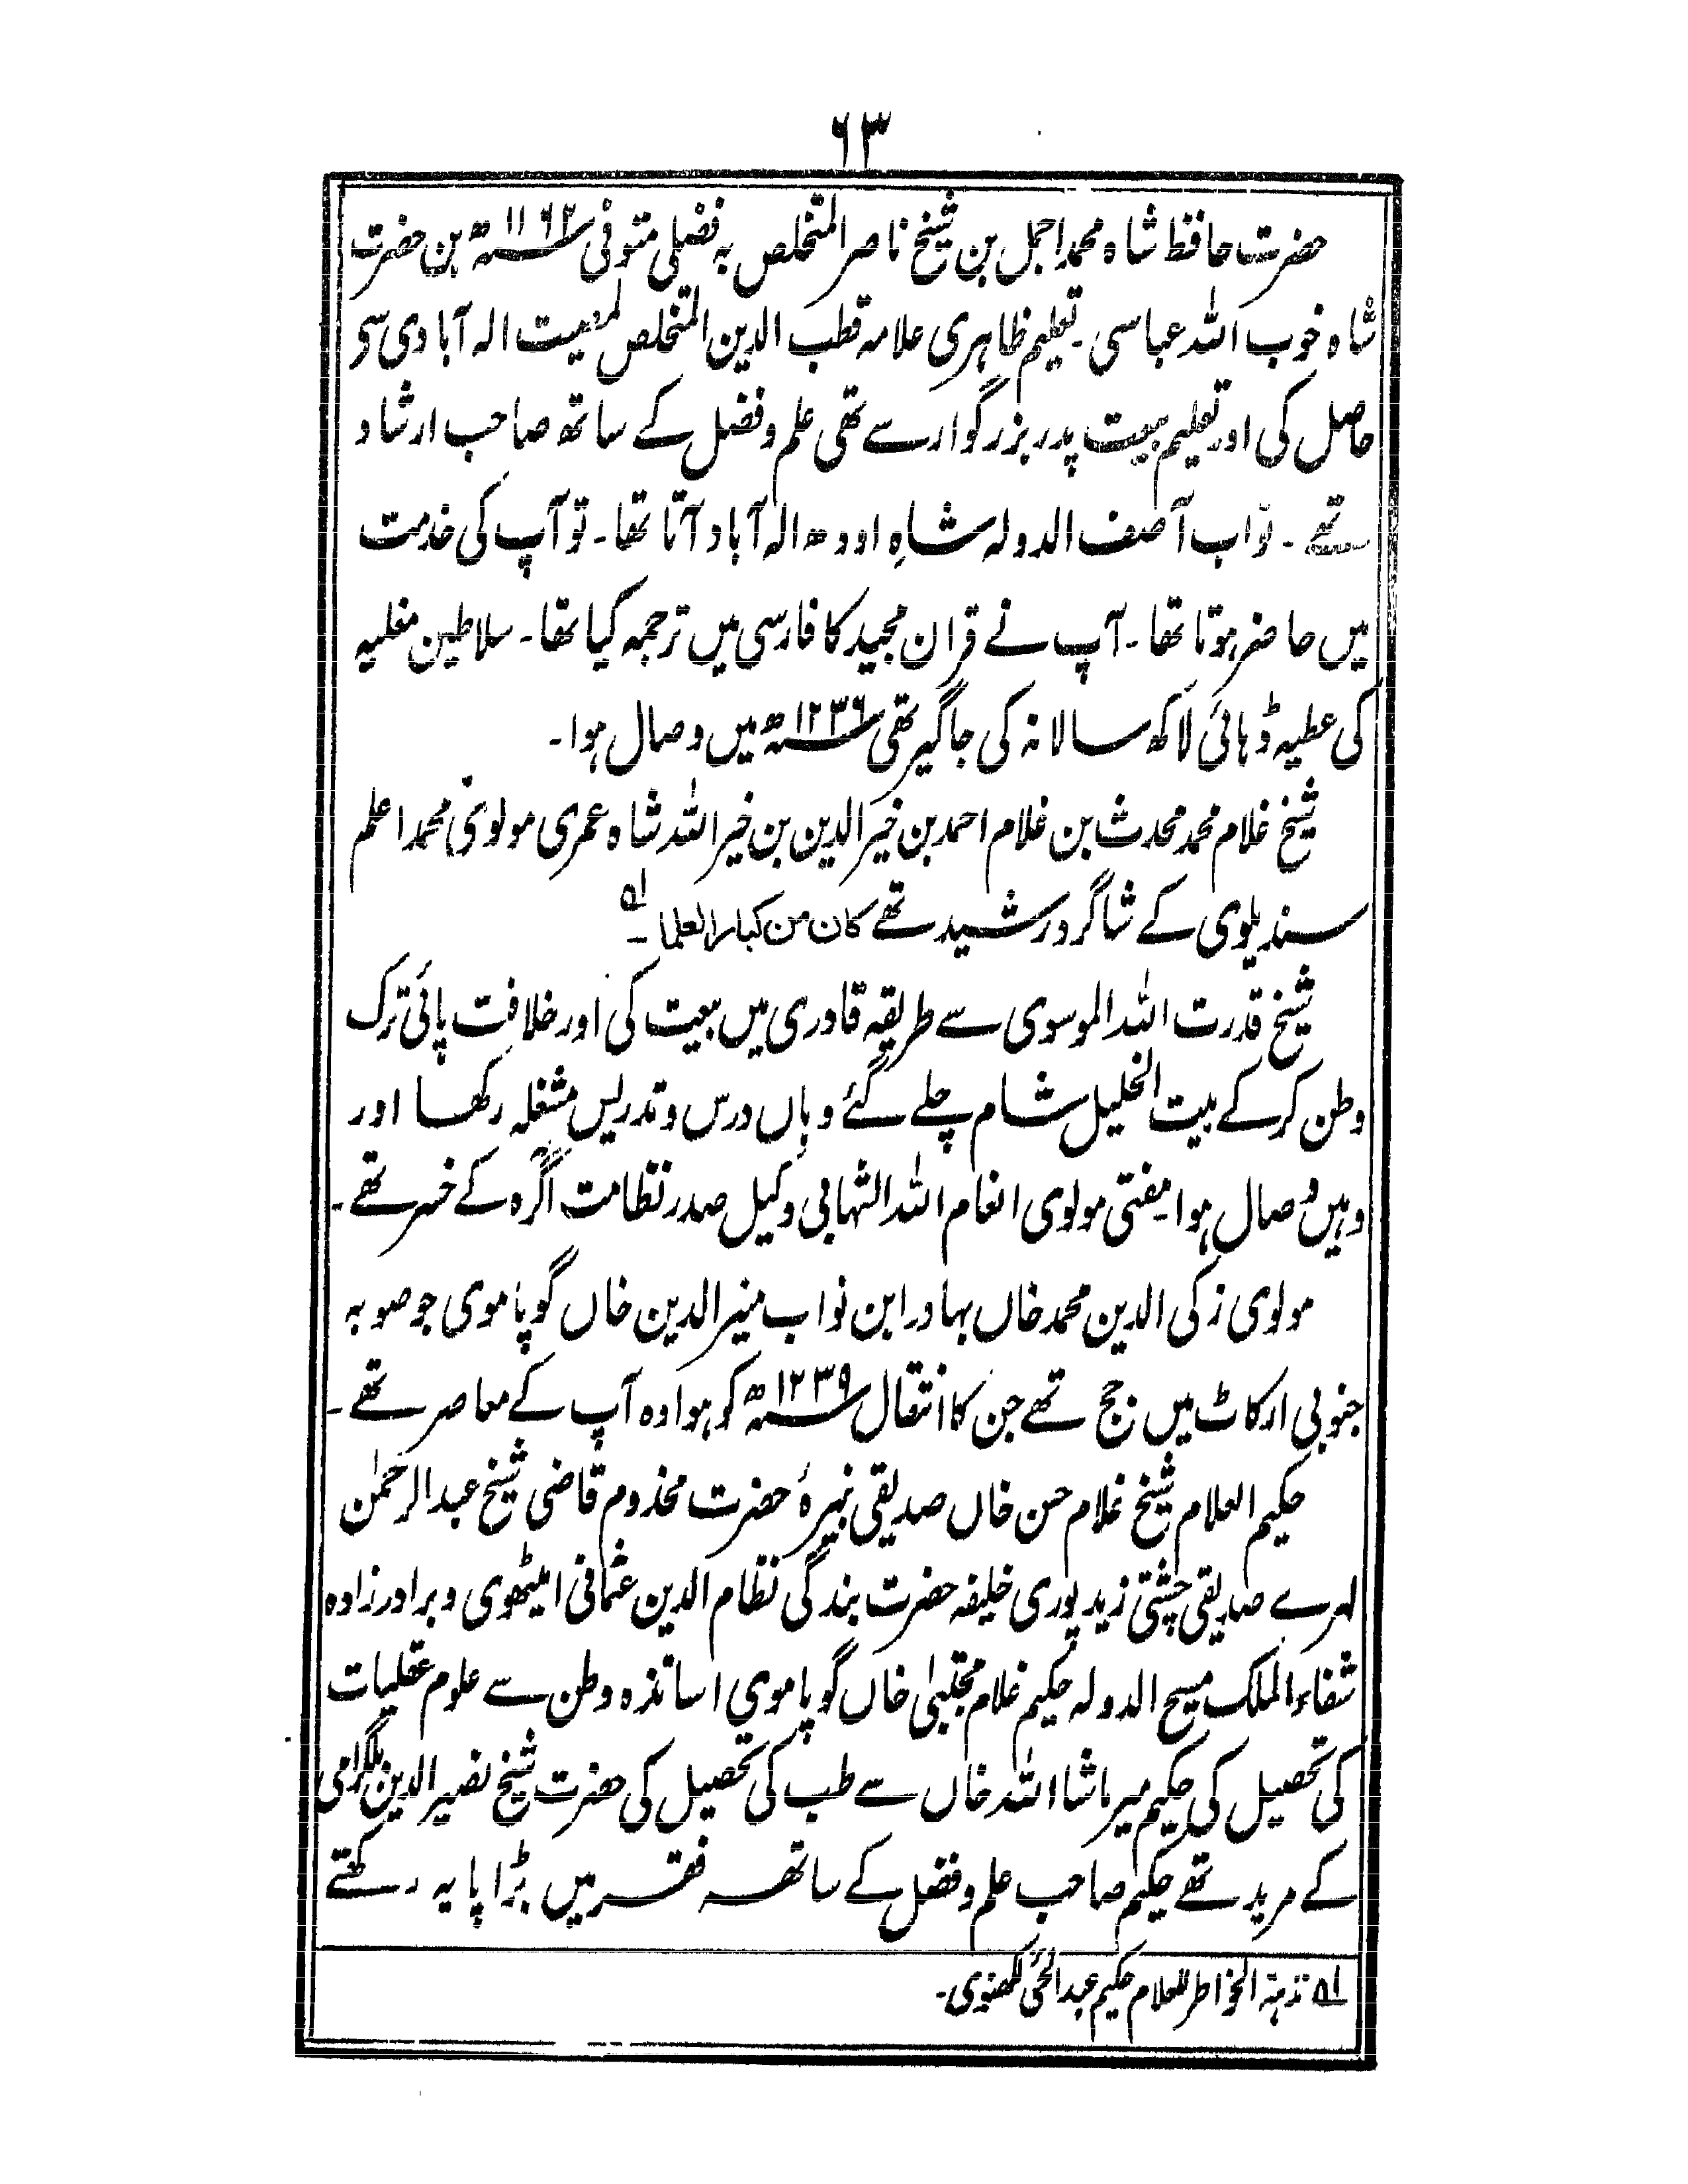 ۶۳
حضرت حافظ شاہ محمد اجمل بن شیخ ناصر المتخلص بہ فضلی متوفی ۱۱۶۳ھ بن حضرت
شاہ خوب اللہ عباسی۔ تعلیم ظاہری علامہ قطب الدین المتخلص الہ آبادی سی
حاصل کی اور تعلیم بیعت پدر بزرگوار سے تھی علم و فضل کے ساتھ صاحب ارشاد
تھے۔ نواب آصف الدولہ شاہِ اودھ الہ آباد آتا تھا۔ تو آپ کی خدمت
میں حاضر ہوتا تھا۔ آپ نے قران مجید کا فارسی میں ترجمہ کیا تھا۔ سلاطین مغلیہ
کی عطیہ ڈہائی لاکھ سالانہ کی جاگیر تھی ۱۲۳۶ھ میں وصال ہوا۔
شیخ غلام محمد محدث بن غلام احمد بن خیر الدین بن خیر اللہ شاہ عمری مولوی محمد اعلم
سندیلوی کے شاگرد رشید تھے کان من کبار العلما ۔ ۱؎
شیخ قدرت اللہ الموسوی سے طریقہ قادری میں بیعت کی اور خلافت پائی ترک
وطن کر کے بیت الخلیل شام چلے گئے وہاں درس و تدریس مشغلہ رکھا اور
وہیں وصال ہوا۔ مفتی مولوی انعام اللہ الشہابی وکیل صدر نظامت آگرہ کے خسر تھے۔
مولوی زکی الدین محمد خاں بہادر ابن نواب منیر الدین خاں گوپاموی جو صوبہ
جنوبی ارکاٹ میں جج تھے جن کا انتقال ۱۲۳۹ھ کو ہوا وہ آپ کے معاصر تھے۔
حکیم العلام شیخ غلام حسن خاں صدیقی نبیرۂ حضرت مخذوم قاضی شیخ عبد الرحمٰن
لہرے صدیقی چشتی زید پوری خلیفہ حضرت بندگی نظام الدین عثمانی امیٹھوی و برادر زادہ
شفاء الملک مسیح الدولہ حکیم غلام مجتبیٰ خاں گوپاموی اساتذہ وطن سے علوم عقلیات
کی تحصیل کی حکیم میر ماشا اللہ خاں سے طب کی تحصیل کی حضرت شیخ نصیر الدین بلگرامی
کے مرید تھے حکیم صاحب علم و فضل کے ساتھ فقر میں بڑا پایہ رکھتے
۱؎ نزہتہ الخواطر للعلام حکیم عبد الحئی لکھنوی۔